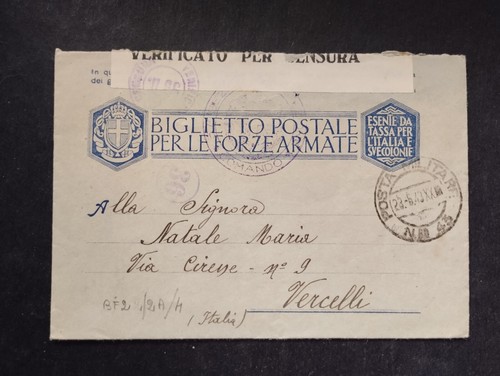 VERIFICATO PER CENSURA
In qu
dei g
BIGLIETTO POSTALE
PER LE FORZE ARMATE
ESENTE DA
TASSA PER
L'ITALIA E
SVE COLONIE
COMANDO
POSTA MILITARE
N. 43
Alla Signora
Natale Maria
Via Cirese - n° 9
Vercelli
(Italia)